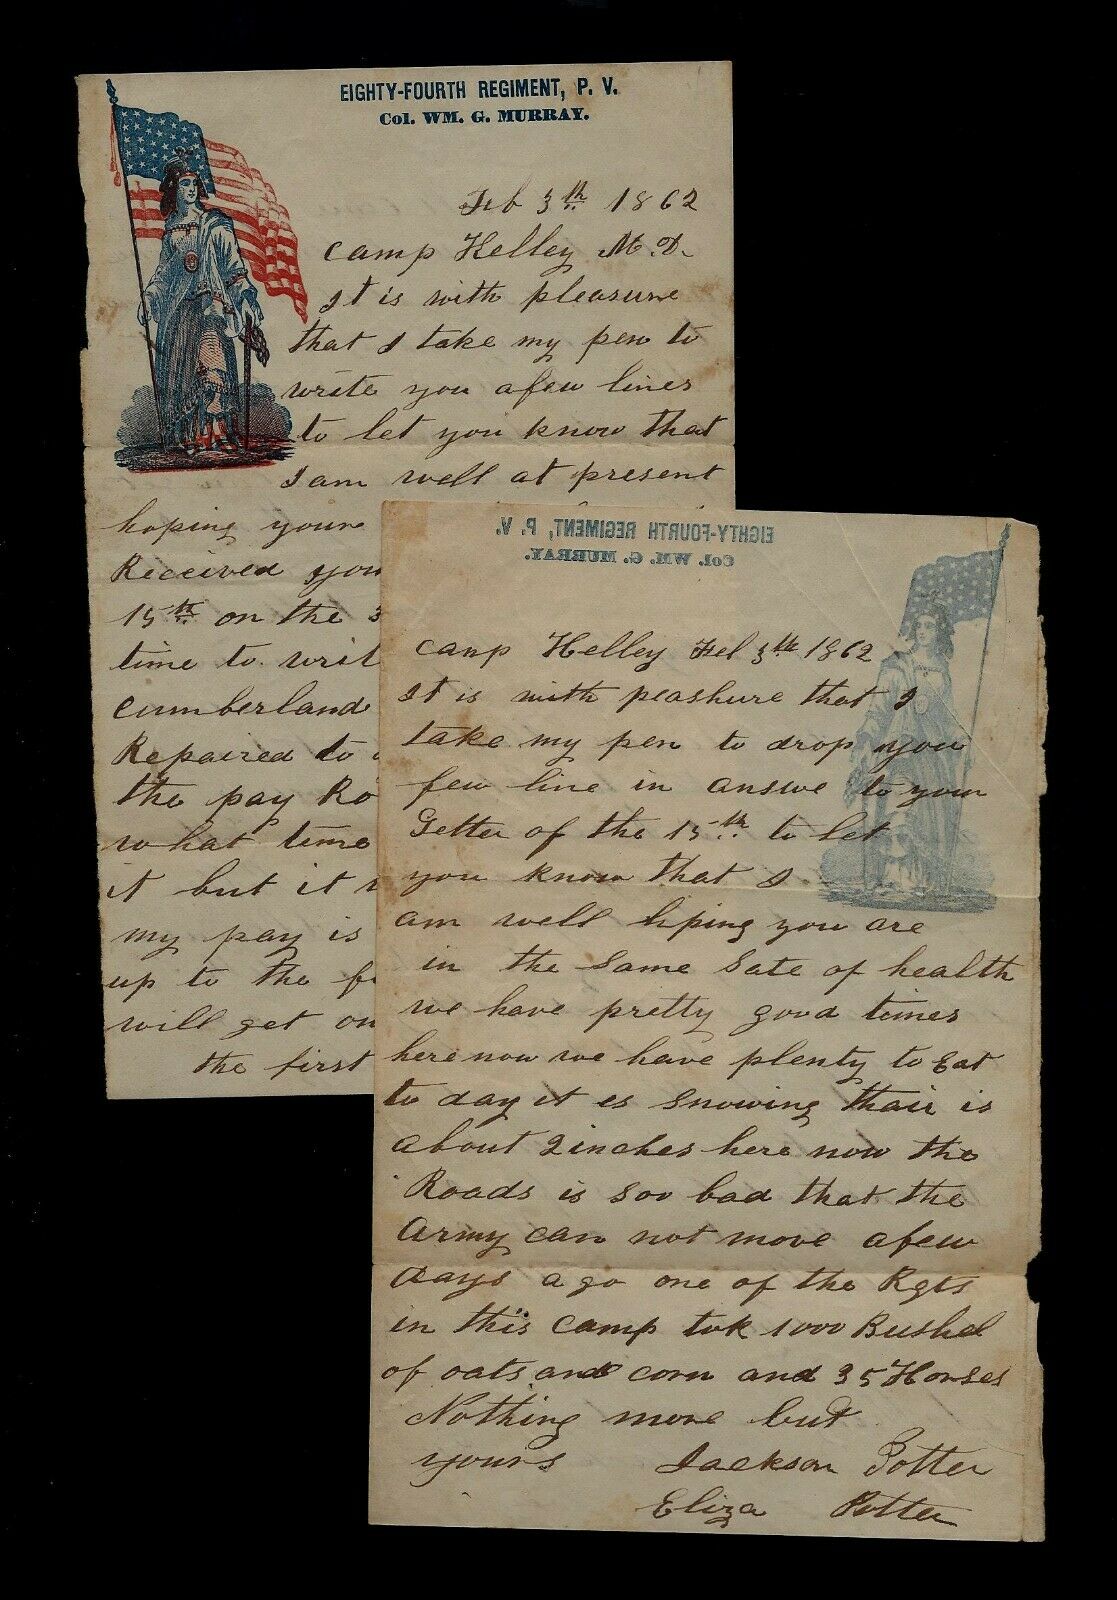 EIGHTY-FOURTH REGIMENT, P. V.
Col. WM. G. MURRAY.
Feb 3th 1862
Camp Kelley M.D.
It is with pleasure
that I take my pen to
write you afew lines
to let you know that
I am well at present
hoping youre
Received you
15th on the 3
time to writ
Cumberland
Repaired to
the pay Ro
what time
it but it
my pay is
up to the f
will get on
the first
EIGHTY-FOURTH REGIMENT, P. V.
Col. WM. G. MURRAY.
Camp Kelley Feb 3th 1862
It is with peashure that I
take my pen to drop you
few line in answe to your
Letter of the 15th to let
you know that I
am well hping you are
in the Same Sate of health
we have pretty good times
here now we have plenty to Eat
to day it es Snowing thair is
about 2 inches here now the
Roads is Soo bad that the
Army can not move afew
days a go one of the Rgts
in this Camp tok 1000 Bushel
of oats and corn and 35 Horses
Nothing more but
yours Jackson Potter
Eliza Potter